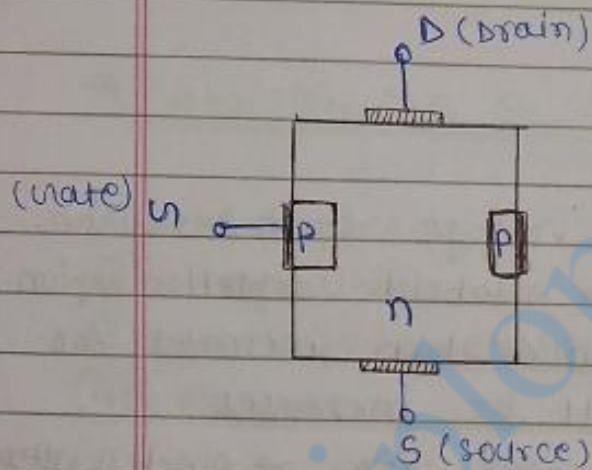 D (Drain)
(Gate) G
P
P
n
S (Source)